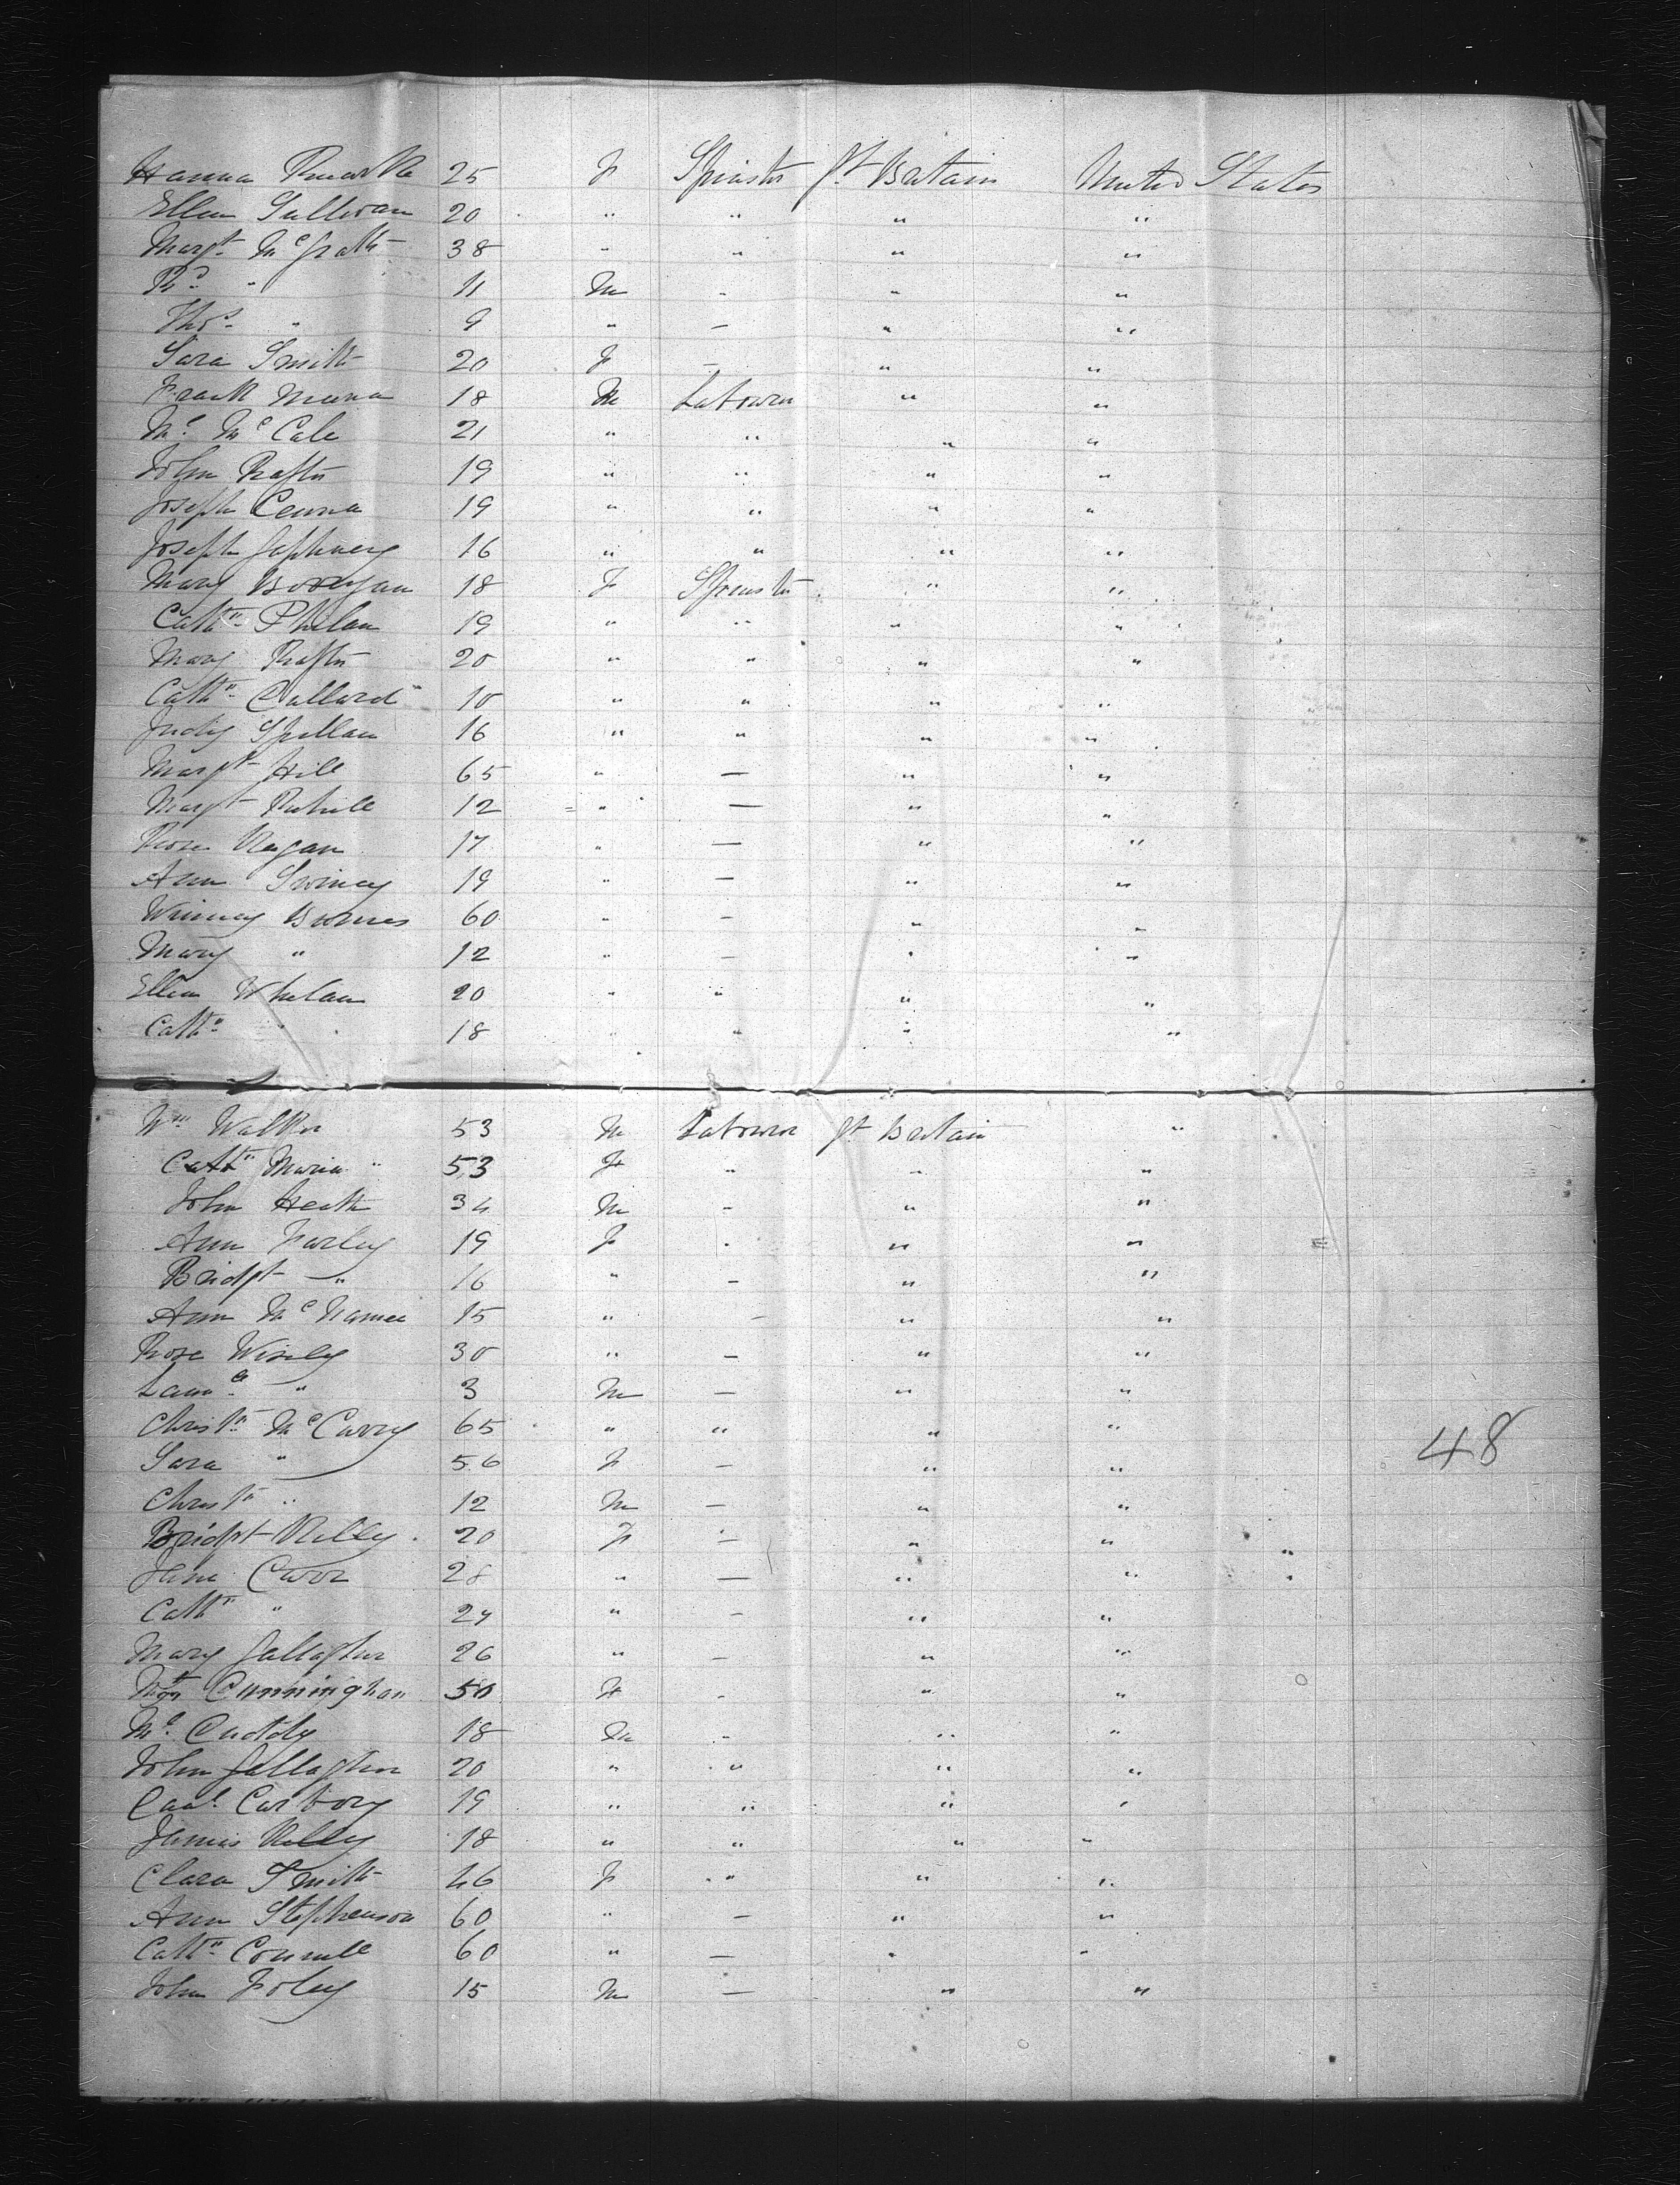 Hanna 25 F Spinster Gt Britain United States
Ellen Sullivan 20 " " " "
Margt McGrath 38 " " " "
Rd " 11 M " " "
Thos " 9 " — " "
Sara Smith 20 F — " "
Frank 18 M Labourer " "
Ml McCale 21 " " " "
John Rafter 19 " " " "
Joseph 19 " " " "
Joseph 16 " " " "
Mary 18 F Spinster " "
Cathn Phelan 19 " " " "
Mary Rafter 20 " " " "
Cathn Callard 10 " " " "
Judy Spillan 16 " " " "
Margt Hill 65 " — " "
Margt 12 " — " "
Rose Regan 17 " — " "
Ann Swiney 19 " — " "
Winney Burnes 60 " — " "
Mary " 12 " — " "
Ellen Whelan 20 " " " "
Cathn " 18 " " " "
Wm Walker 53 M Labourer Gt Britain "
Cathn Maria " 53 F " " "
John Heath 34 M " " "
Ann Farley 19 F " " "
Bridgt " 16 " — " "
Ann McNamee 15 " — " "
Rose Wisely 30 " — " "
Lawce " 3 M — " "
Christn McCarry 65 " " " "
Sara " 56 F — " "
48
Christn " 12 M — " "
Bridgt Kelly 20 F — " "
Jane Carr 28 " — " "
Cathn " 27 " — " "
Mary Gallagher 26 " — " "
Mgt Cunninghan 50 F - " "
Ml Cuddy 18 M - " "
John Gallagher 20 " " " "
19 " " " "
James Kelly 18 " " " "
Clara Smith 46 F " " "
Ann Stephenson 60 " — " "
Cathn 60 " — " "
John Foley 15 M — " "